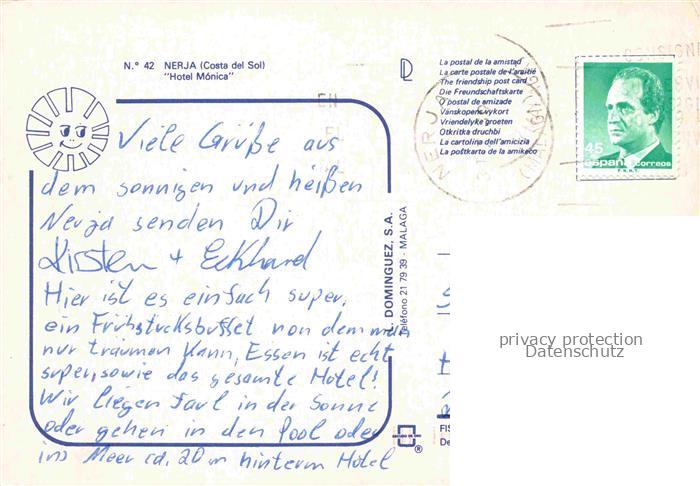 N.° 42 NERJA (Costa del Sol)
"Hotel Mónica"
Viele Grüße aus
dem sonnigen und heißen
Nerja senden Dir
Kirsten + Eckhard
Hier ist es einfach super,
ein Frühstücksbuffet von dem man
nur träumen kann, Essen ist echt
super, sowie das gesamte Hotel!
Wir liegen faul in der Sonne
oder gehen in den Pool oder
ins Meer ca. 20 m hinterm Hotel
La postal de la amistad
La carte postale de l'amitié
The friendship post card
Die Freundschaftskarte
O postal de amizade
Vänskapensvykort
Vriendelyke groeten
Otkritka druchbi
La cartolina dell'amicizia
La poŝtkarto de la amikeco
NERJA
45
españa correos
F.N.M.T.
DOMINGUEZ, S.A.
Teléfono 21 79 39 - MALAGA
privacy protection
Datenschutz
FIS
De
®